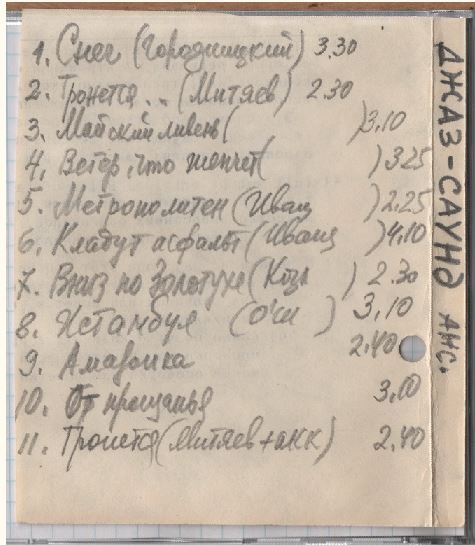 1. Снег (Городницкий) 3.30
2. Тронется.. (Митяев) 2.30
3. Майский ливень ( ) 3.10
4. Ветер, что шепчет ( ) 325
5. Метрополитен (Иващ ) 2.25
6. Кладут асфальт (Иващ ) 4.10
7. Вниз по Золотухе (Козл ) 2.30
8. Истамбул ( ) 3,10
9. Амазонка 2.40
10. От прощанья 3,00
11. Тронется (Митяев+акк) 2.40
ДЖАЗ-САУНД АНС.